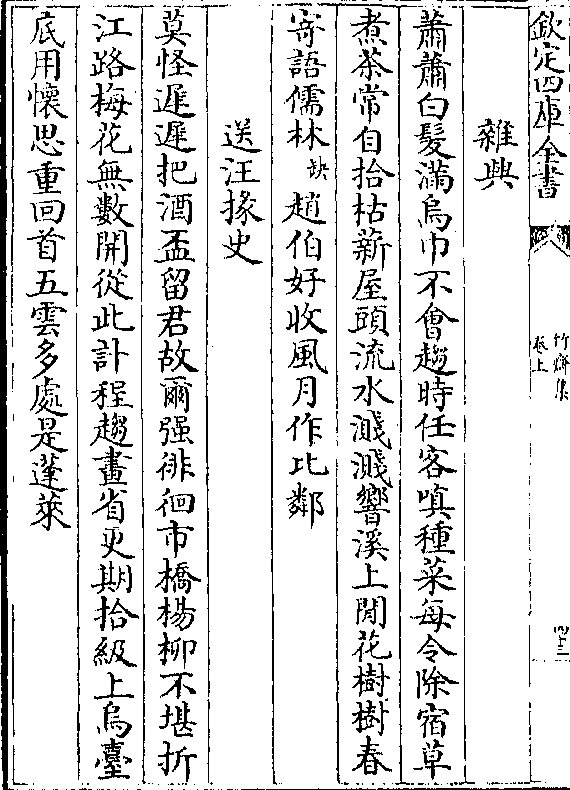 欽定四庫全書
竹齋集
卷上
四十三
雜興
蕭蕭白髮滿烏巾不會趨時任客嗔種菜每令除宿草
煮茶常自拾枯薪屋頭流水濺濺響溪上閒花樹樹春
寄語儒林缺趙伯好收風月作比鄰
送汪掾史
莫怪遲遲把酒盃留君故爾强徘徊市橋楊柳不堪折
江路梅花無數開從此計程趨畫省更期拾級上烏臺
底用懷思重回首五雲多處是蓬萊